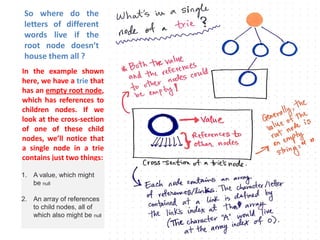 So where do the
letters of different
words live if the
root node doesn't
house them all ?
In the example shown
here, we have a trie that
has an empty root node,
which has references to
children nodes. If we
look at the cross-section
of one of these child
nodes, we'll notice that
a single node in a trie
contains just two things:
1. A value, which might
be null
2. An array of references
to child nodes, all of
which also might be null
What's in a single
node of a trie ?
* Both the value
and the references
to other nodes could
be empty!
Value
References to
other nodes
Cross-section of a trie's node.
Generally, the
value of the
root node is
an empty
string: " "
Each node contains an array
of references/links. The character/letter
contained at a link is defined by
the link's index at that array.
(The character "A" would live
at the array index of 0).